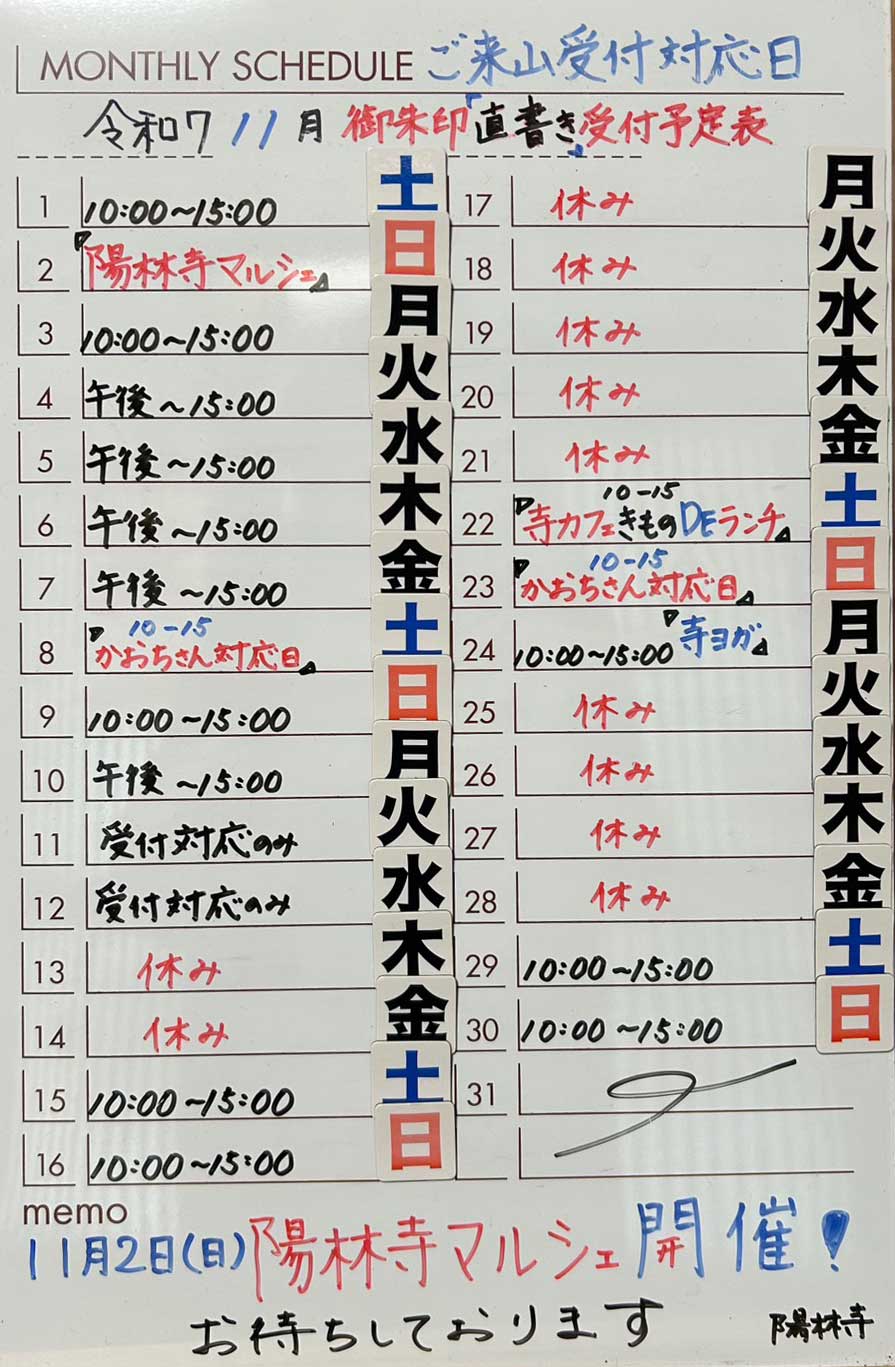 MONTHLY SCHEDULE ご来山受付対応日
令和7 11月 御朱印「直書き」受付予定表
1 10:00～15:00 土
2 『陽林寺マルシェ』 日
3 10:00～15:00 月
4 午後～15:00 火
5 午後～15:00 水
6 午後～15:00 木
7 午後～15:00 金
8 『かおちさん対応日』 10-15 土
9 10:00～15:00 日
10 午後～15:00 月
11 受付対応のみ 火
12 受付対応のみ 水
13 休み 木
14 休み 金
15 10:00～15:00 土
16 10:00～15:00 日
17 休み 月
18 休み 火
19 休み 水
20 休み 木
21 休み 金
22 『寺カフェきものDEランチ』 10-15 土
23 『かおちさん対応日』 10-15 日
24 10:00～15:00 『寺ヨガ』 月
25 休み 火
26 休み 水
27 休み 木
28 休み 金
29 10:00～15:00 土
30 10:00～15:00 日
31
memo
11月2日(日)陽林寺マルシェ開催!
お待ちしております 陽林寺